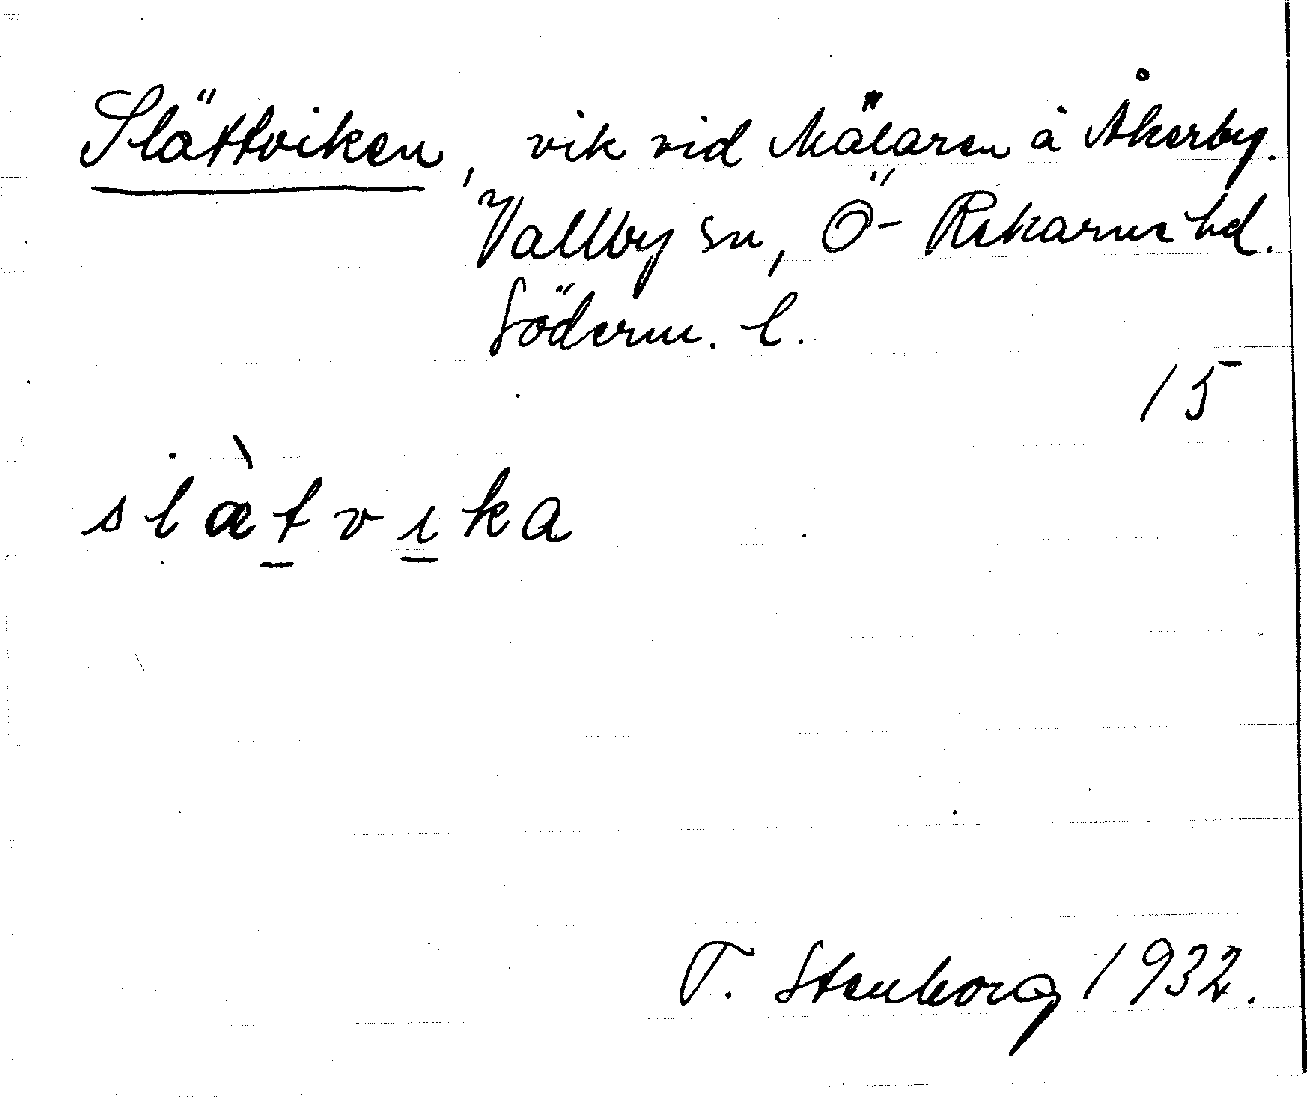 Slättviken, vik vid Mälaren å Åkerby.
Vallby sn, Ö-Rekarne hd.
Söderm. l.
15
slæ̀t̠vi̠ka
T. Stenborg 1932.